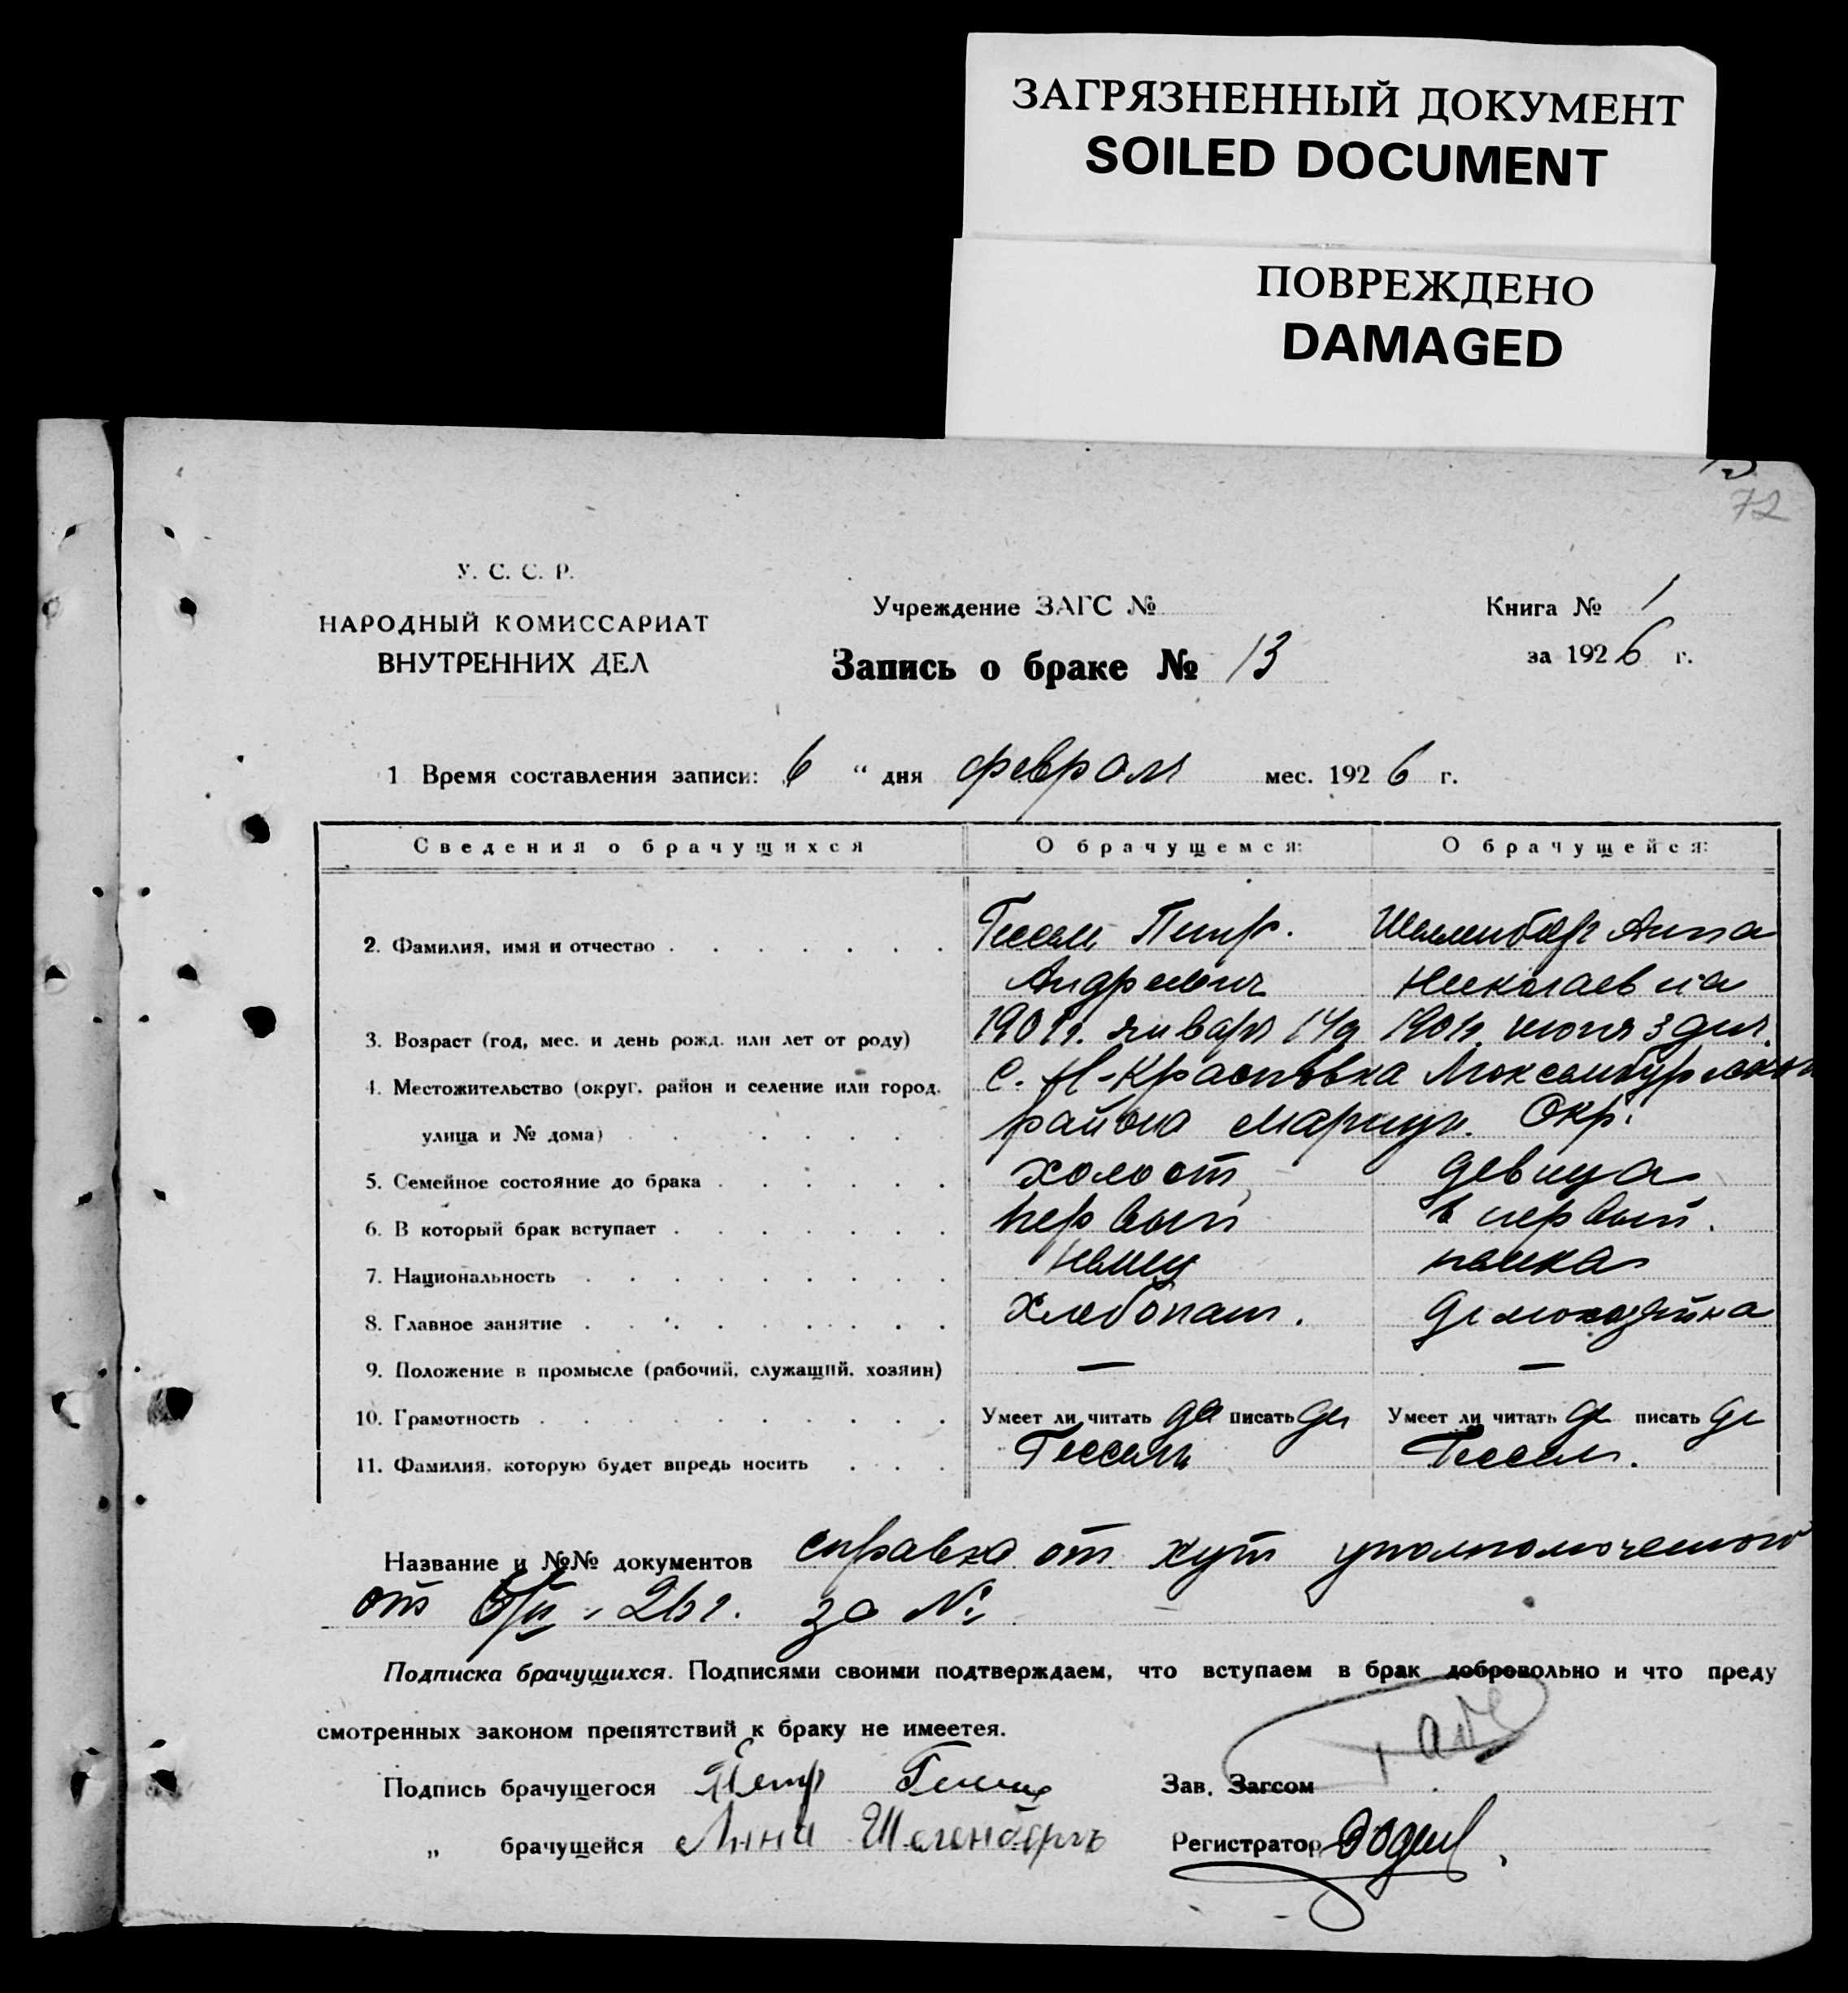 ЗАГРЯЗНЕННЫЙ ДОКУМЕНТ
SOILED DOCUMENT
ПОВРЕЖДЕНО
DAMAGED
72
У. С. С. Р.
НАРОДНЫЙ КОМИССАРИАТ
ВНУТРЕННИХ ДЕЛ
Учреждение ЗАГС №
Запись о браке № 13
Книга № 1
за 1926 г.
1 Время составления записи: 6 " дня февраля мес. 1926 г.
Сведения о брачущихся О брачущемся: О брачущейся:
2. Фамилия, имя и отчество Гессель Петр. Анна
Андреевич Николаевна
3. Возраст (год, мес. и день рожд. или лет от роду) января 14д июня 3 дня.
4. Местожительство (округ, район и селение или город, с. Н-Красновка Люксембургского
улица и № дома) района Мариуп. Окр.
5. Семейное состояние до брака холост, девица
6. В который брак вступает первый в первый.
7. Национальность немец немка
8. Главное занятие Хлебопаш. домохозяйка
9. Положение в промысле (рабочий, служащий, хозяин) — —
10. Грамотность Умеет ли читать да писать да Умеет ли читать да писать да
11. Фамилия, которую будет впредь носить Гессель Гессель.
Название и №№ документов справка от хут уполномоченного
от 6/II - 26 г. за №
Подписка брачущихся. Подписями своими подтверждаем, что вступаем в брак добровольно и что преду
смотренных законом препятствий к браку не имеется.
Подпись брачущегося Петр Зав. Загсом
„ брачущейся Анна Регистратор